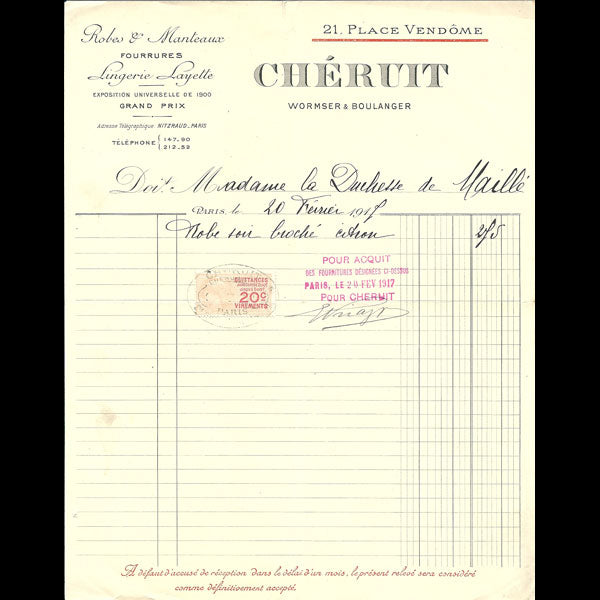 Robes & Manteaux
FOURRURES
Lingerie Layette
EXPOSITION UNIVERSELLE DE 1900
GRAND PRIX
Adresse Télégraphique. NITZRAUD_PARIS
TÉLÉPHONE { 147.90
212.52
21, PLACE VENDÔME
CHÉRUIT
WORMSER & BOULANGER
Doit Madame la Duchesse de Maillé
PARIS, le 20 Février 1917
Robe soir broché citron 275
POUR ACQUIT
DES FOURNITURES DÉSIGNÉES CI-DESSUS
PARIS, LE 20 FEV 1917
POUR CHERUIT
CHERUIT
PARIS
QUITTANCES
20c
VIREMENTS
A défaut d'accusé de réception dans le délai d'un mois, le présent relevé sera considéré
comme définitivement accepté.